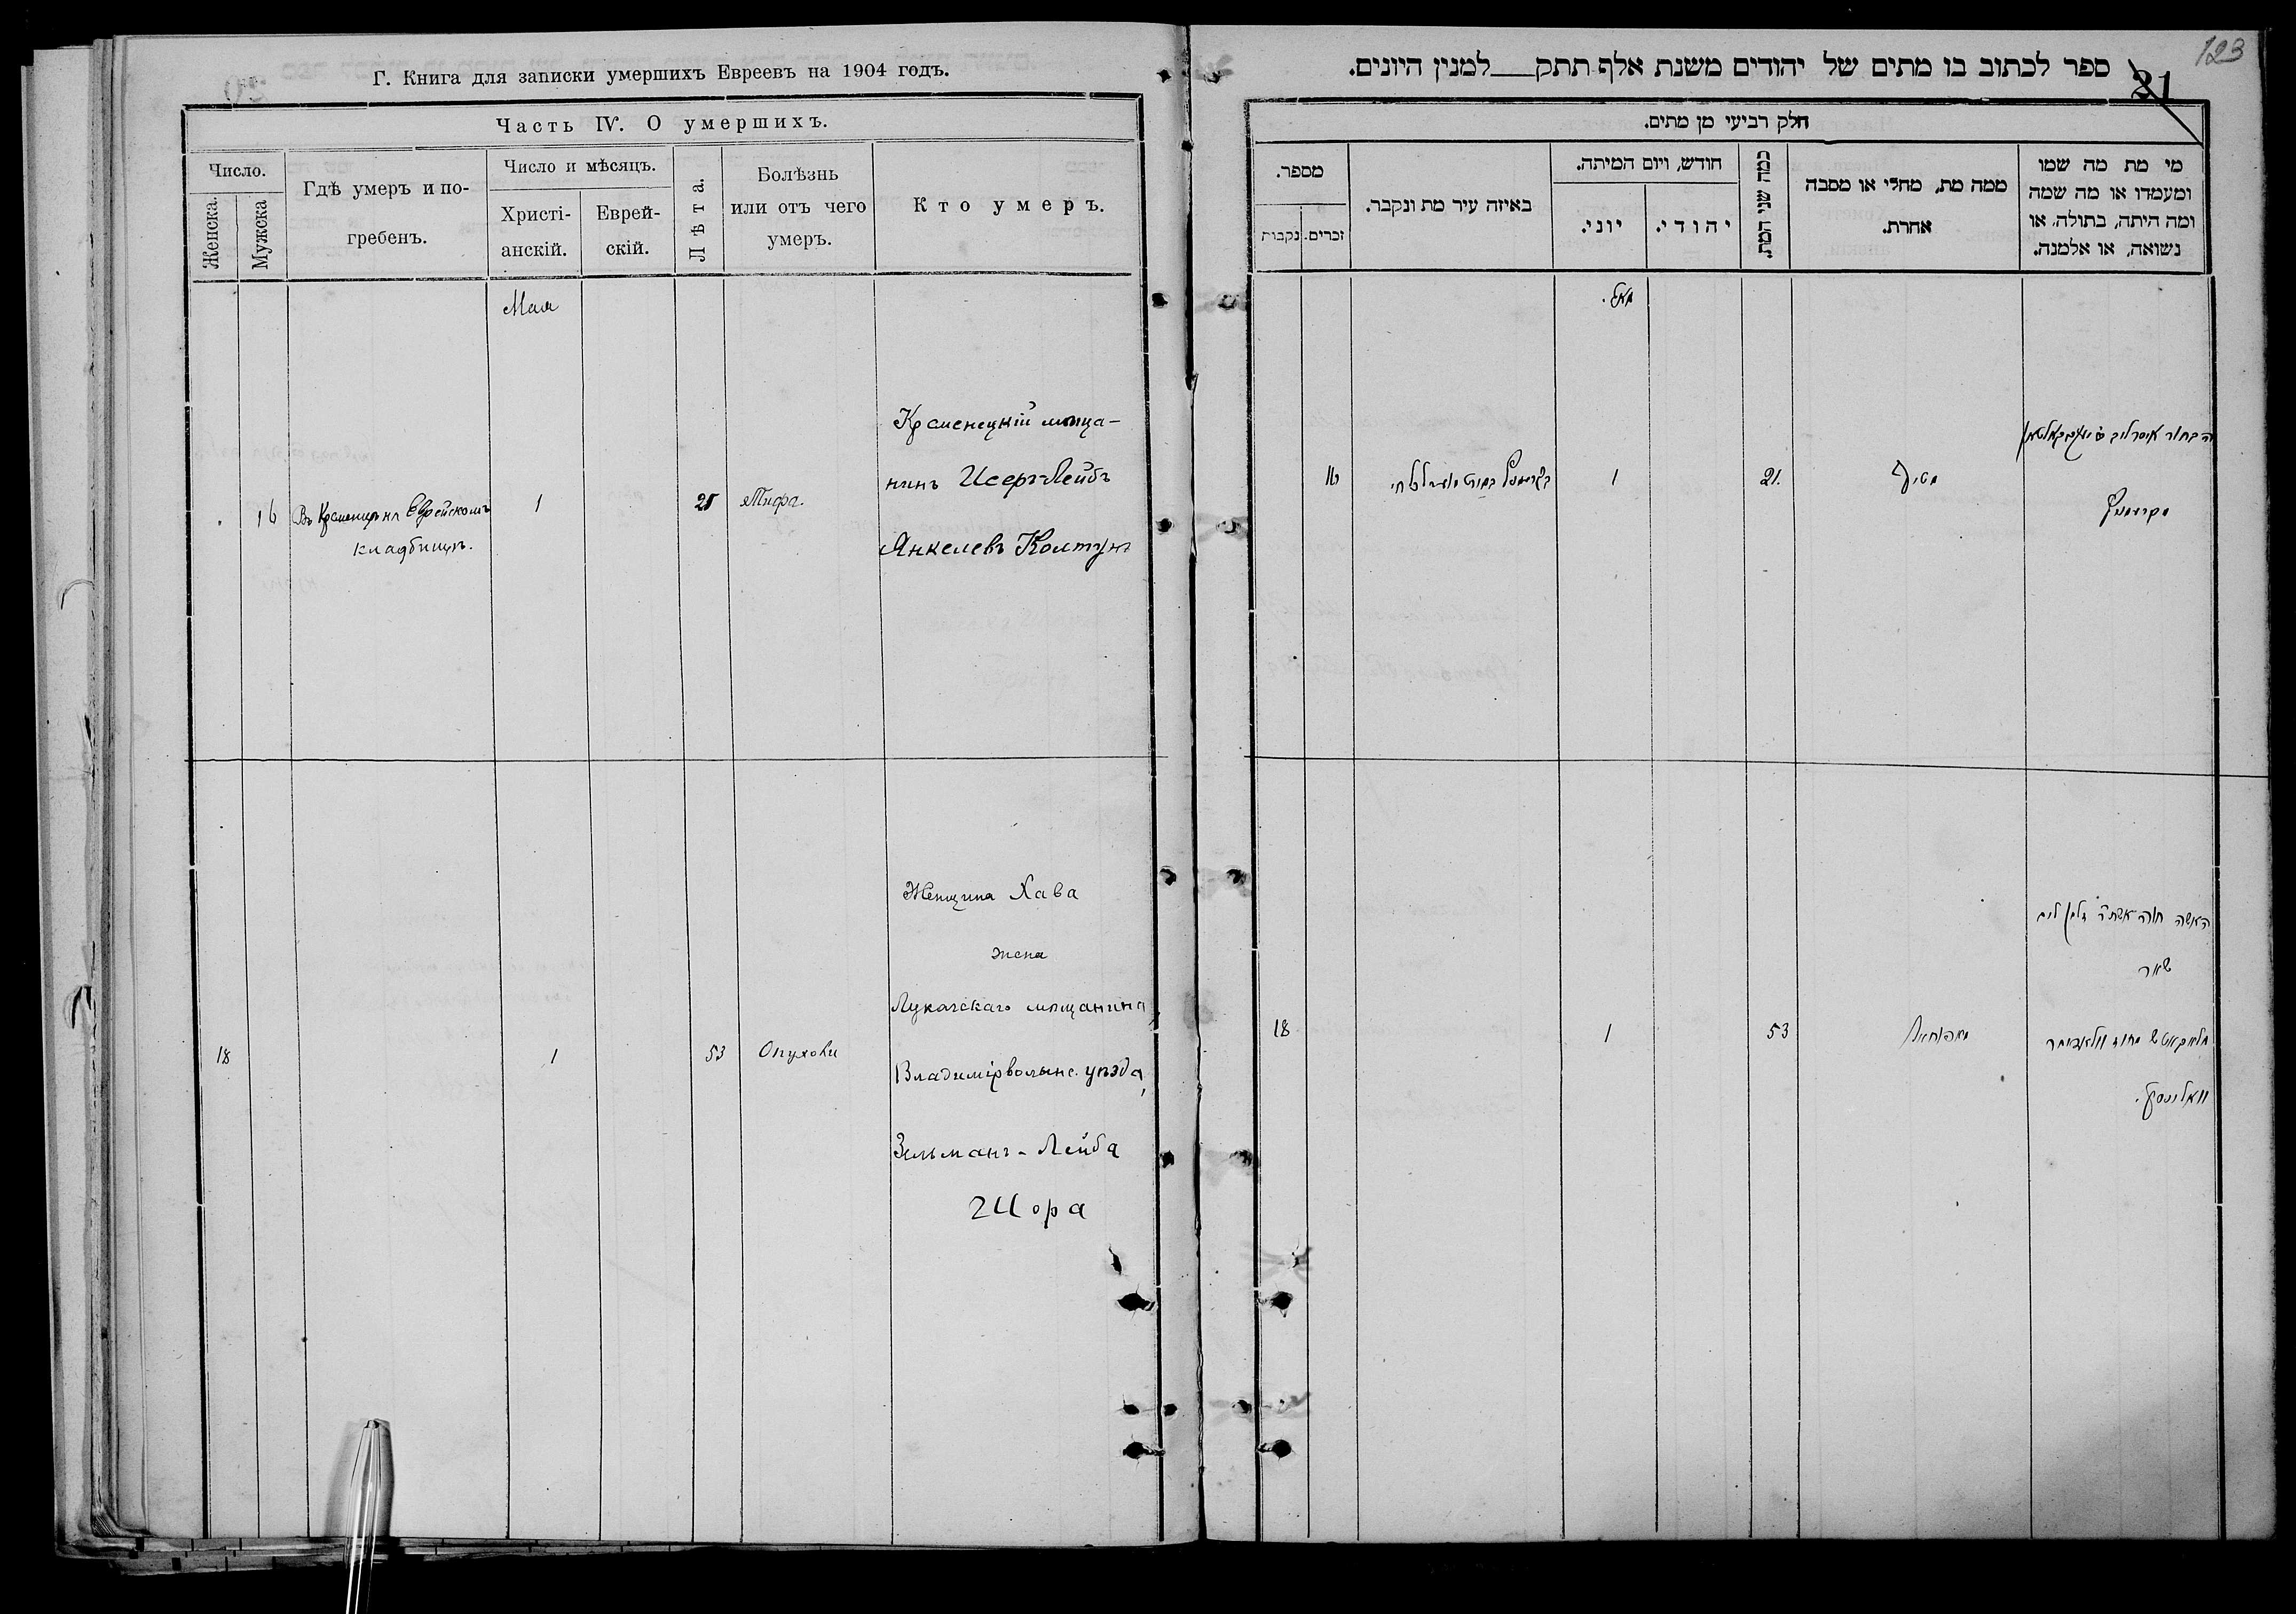 Г. Книга для записки умершихъ Евреевъ на 1904 годъ.
Часть IV. О умершихъ.
Число.
Женска.
Мужска
Гдѣ умеръ и по-
гребенъ.
Число и мѣсяцъ.
Христі-
анскій.
Еврей-
скій.
Лѣта.
Болѣзнь
или отъ чего
умеръ.
Кто умеръ.
Мая
16
Въ Кременцѣ на Еврейскомъ
кладбищѣ.
1
21
Тифа.
Кременецкій мѣща-
нинъ Исеръ-Лейбъ
Янкелевъ Колтунъ
18
1
53
Опухоли
Женщина Хава
жена
Лукачскаго мѣщанина,
Владимірволынс. уѣзда,
Зельманъ-Лейба
Шора
123
81
ספר לכתוב בו מתים של יהודים משנת אלף תתק___למנין היונים.
חלק רביעי מן מתים.
מספר.
נקבות
זכרים.
באיזה עיר מת ונקבר.
חודש, ויום המיתה.
יוני.
יהודי.
כמה שני המת.
ממה מת, מחלי או מסבה
אחרת.
מי מת מה שמו
ומעמדו או מה שמה
ומה היתה, בתולה, או
נשואה, או אלמנה.
מאי.
16
1
21.
הבחור
18
1
53
האשה חוה אשת זלמן ליב
שאר